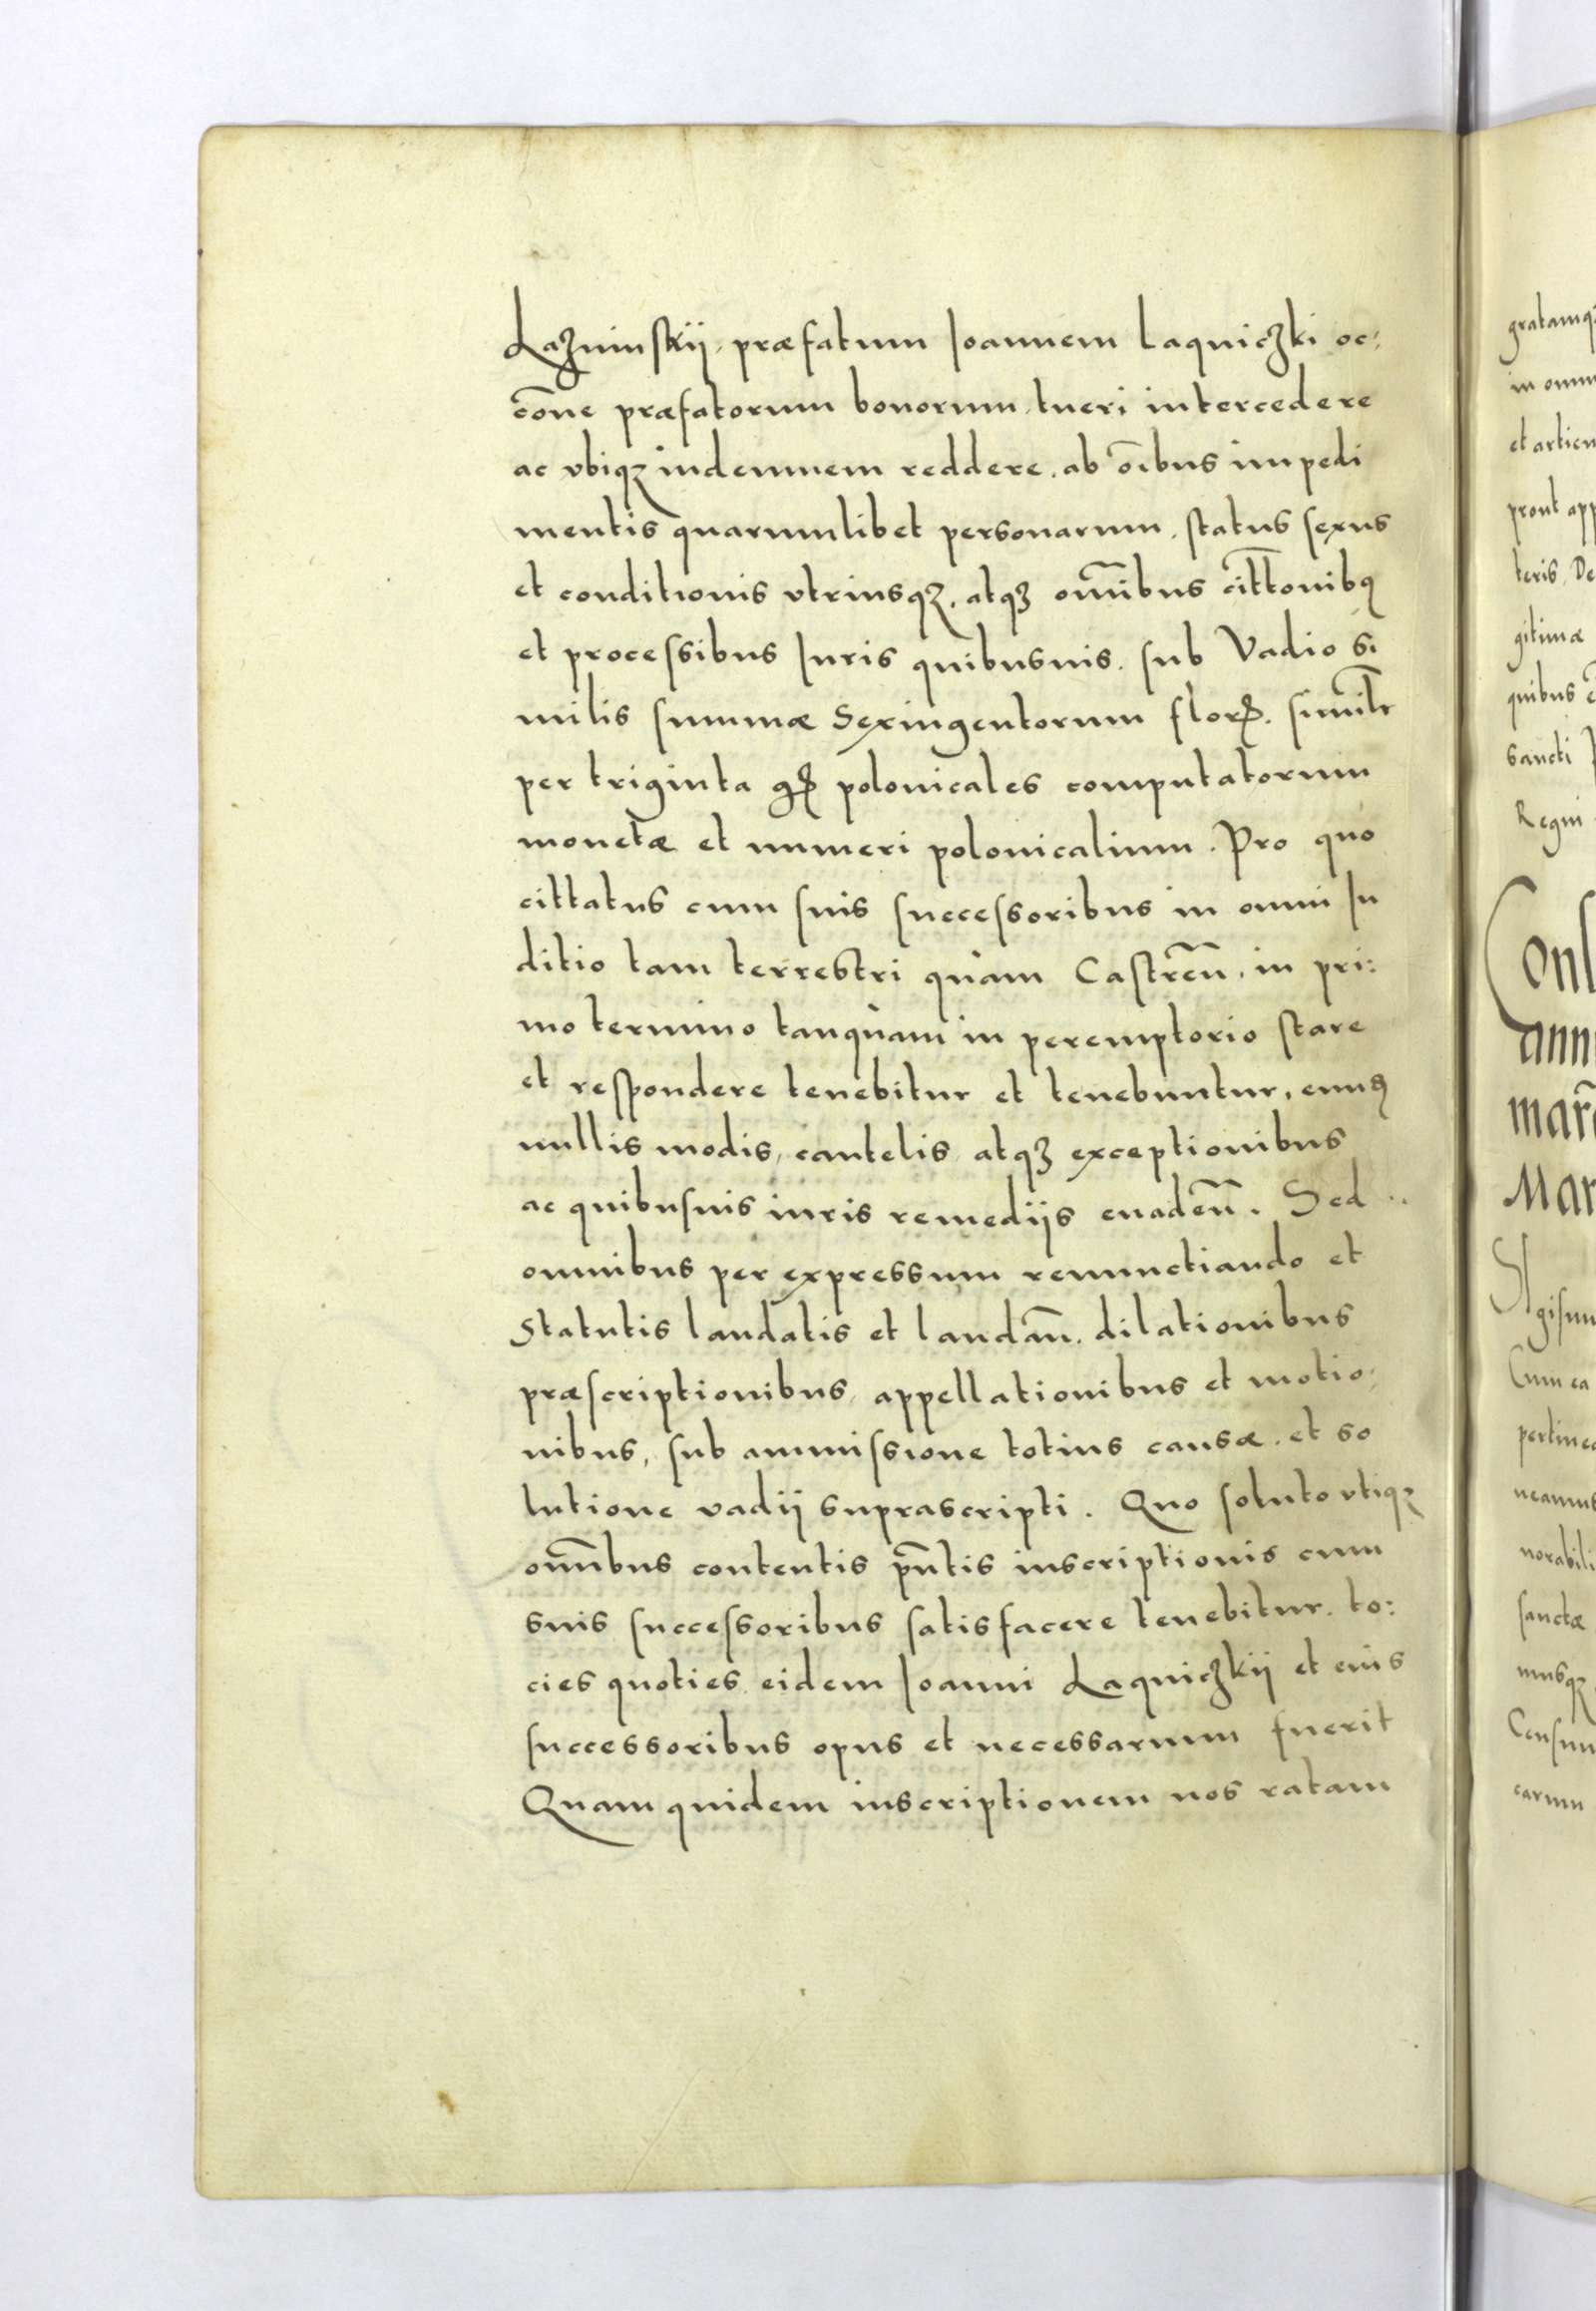 Lazninskij, præfatum Joannem Laqniczki oc:
cõne præfatorum bonorum, tueri intercedere
ac vbiqꝫ indemnem reddere. ab oĩbus impedi
mentis quarumlibet personarum, status sexus
et conditionis vtriusqꝫ. atqꝫ om̃ibus cittõnibꝰ
et processibus Iuris quibusuis. sub Vadio si
milis summæ Sexingentorum florꝭ. similr̃
per triginta gꝭ polonicales computatorum
monetæ et numeri polonicalium. Pro quo
cittatus cum suis successoribus in omni Iu
ditio tam terrestri quam Castreñ. in pri:
mo termino tanquam in peremptorio stare
et respondere tenebitur et tenebuntur,
nullis modis, cautelis atqꝫ exceptionibus
ac quibusuis iuris remedijs euadeñ. Sed
omnibus per expressum renunctiando et
Statutis laudatis et laudañ. dilationibus
præscriptionibus, appellationibus et motio:
nibus, sub ammissione totius causæ. et so
lutione vadij suprascripti. Quo soluto vtiqꝫ
om̃ibus contentis pñtis inscriptionis cum
suis successoribus satisfacere tenebitur. to:
cies quoties eidem Joanni Laqniczkij et eius
successoribus opus et necessarium fuerit
Quam quidem inscriptionem nos ratam
gratamqꝫ
et artic
prout app
teris, De
gitimæ
quibus
sancti
Regni
Cons
ann
Mar
Sigismu
Cum ea
pertine
neamus
norabili
sanctæ
Censu
carum